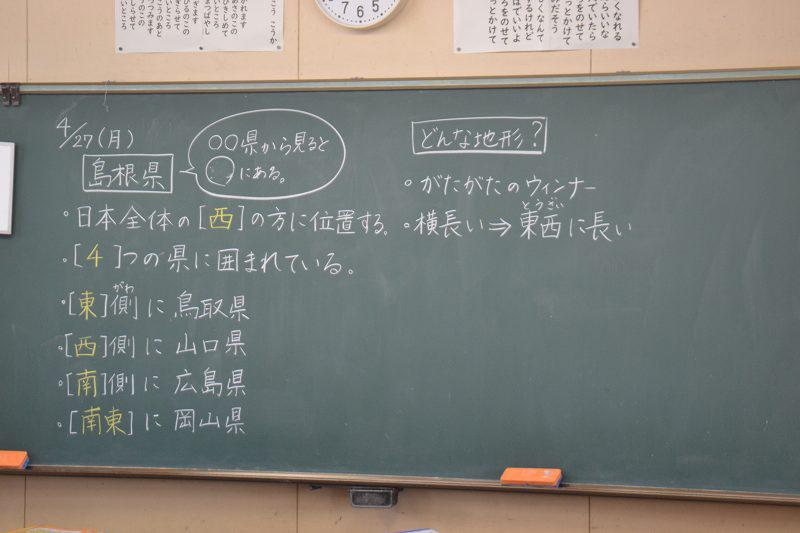 4/27(月)
島根県
○○県から見ると
○にある。
・日本全体の[西]の方に位置する。
・[4]つの県に囲まれている。
がわ
・[東]側に鳥取県
・[西]側に山口県
・[南]側に広島県
・[南東]に岡山県
どんな地形?
・がたがたのウィンナー
とうざい
・横長い⇒東西に長い
7 6 5